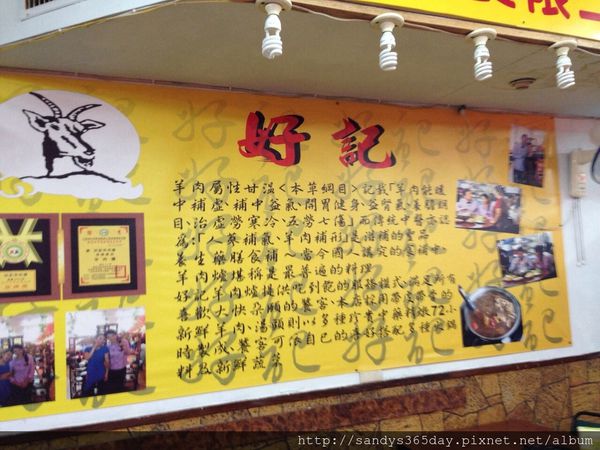 限
好記
羊肉屬性甘溫<本草綱目>記載「羊肉能暖
中補虛、補中益氣、開胃健身、益腎氣、養膽明
目、治虛勞寒冷、五勞七傷」而傳統中醫亦認
為:「人蔘補氣、羊肉補形」是滋補的聖品
養生藥膳食補～當今國人講究的食補中
羊肉爐堪稱是最普遍的料理
好記羊肉爐提供吃到飽的服務模式滿足所有
喜歡大快朵頤的饕客、本店採用帶皮帶骨的
新鮮羊肉、湯頭則以多種珍貴中藥精燉72小
時製成、饕客可依自己的喜好搭配多種火鍋
料及新鮮蔬菜
http://sandys365day.pixnet.net/album